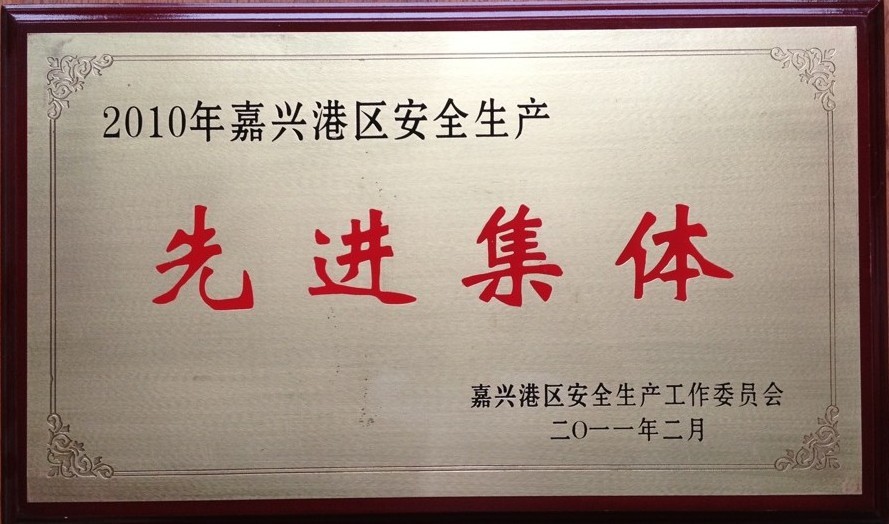 2010年嘉兴港区安全生产
先进集体
嘉兴港区安全生产工作委员会
二〇一一年二月